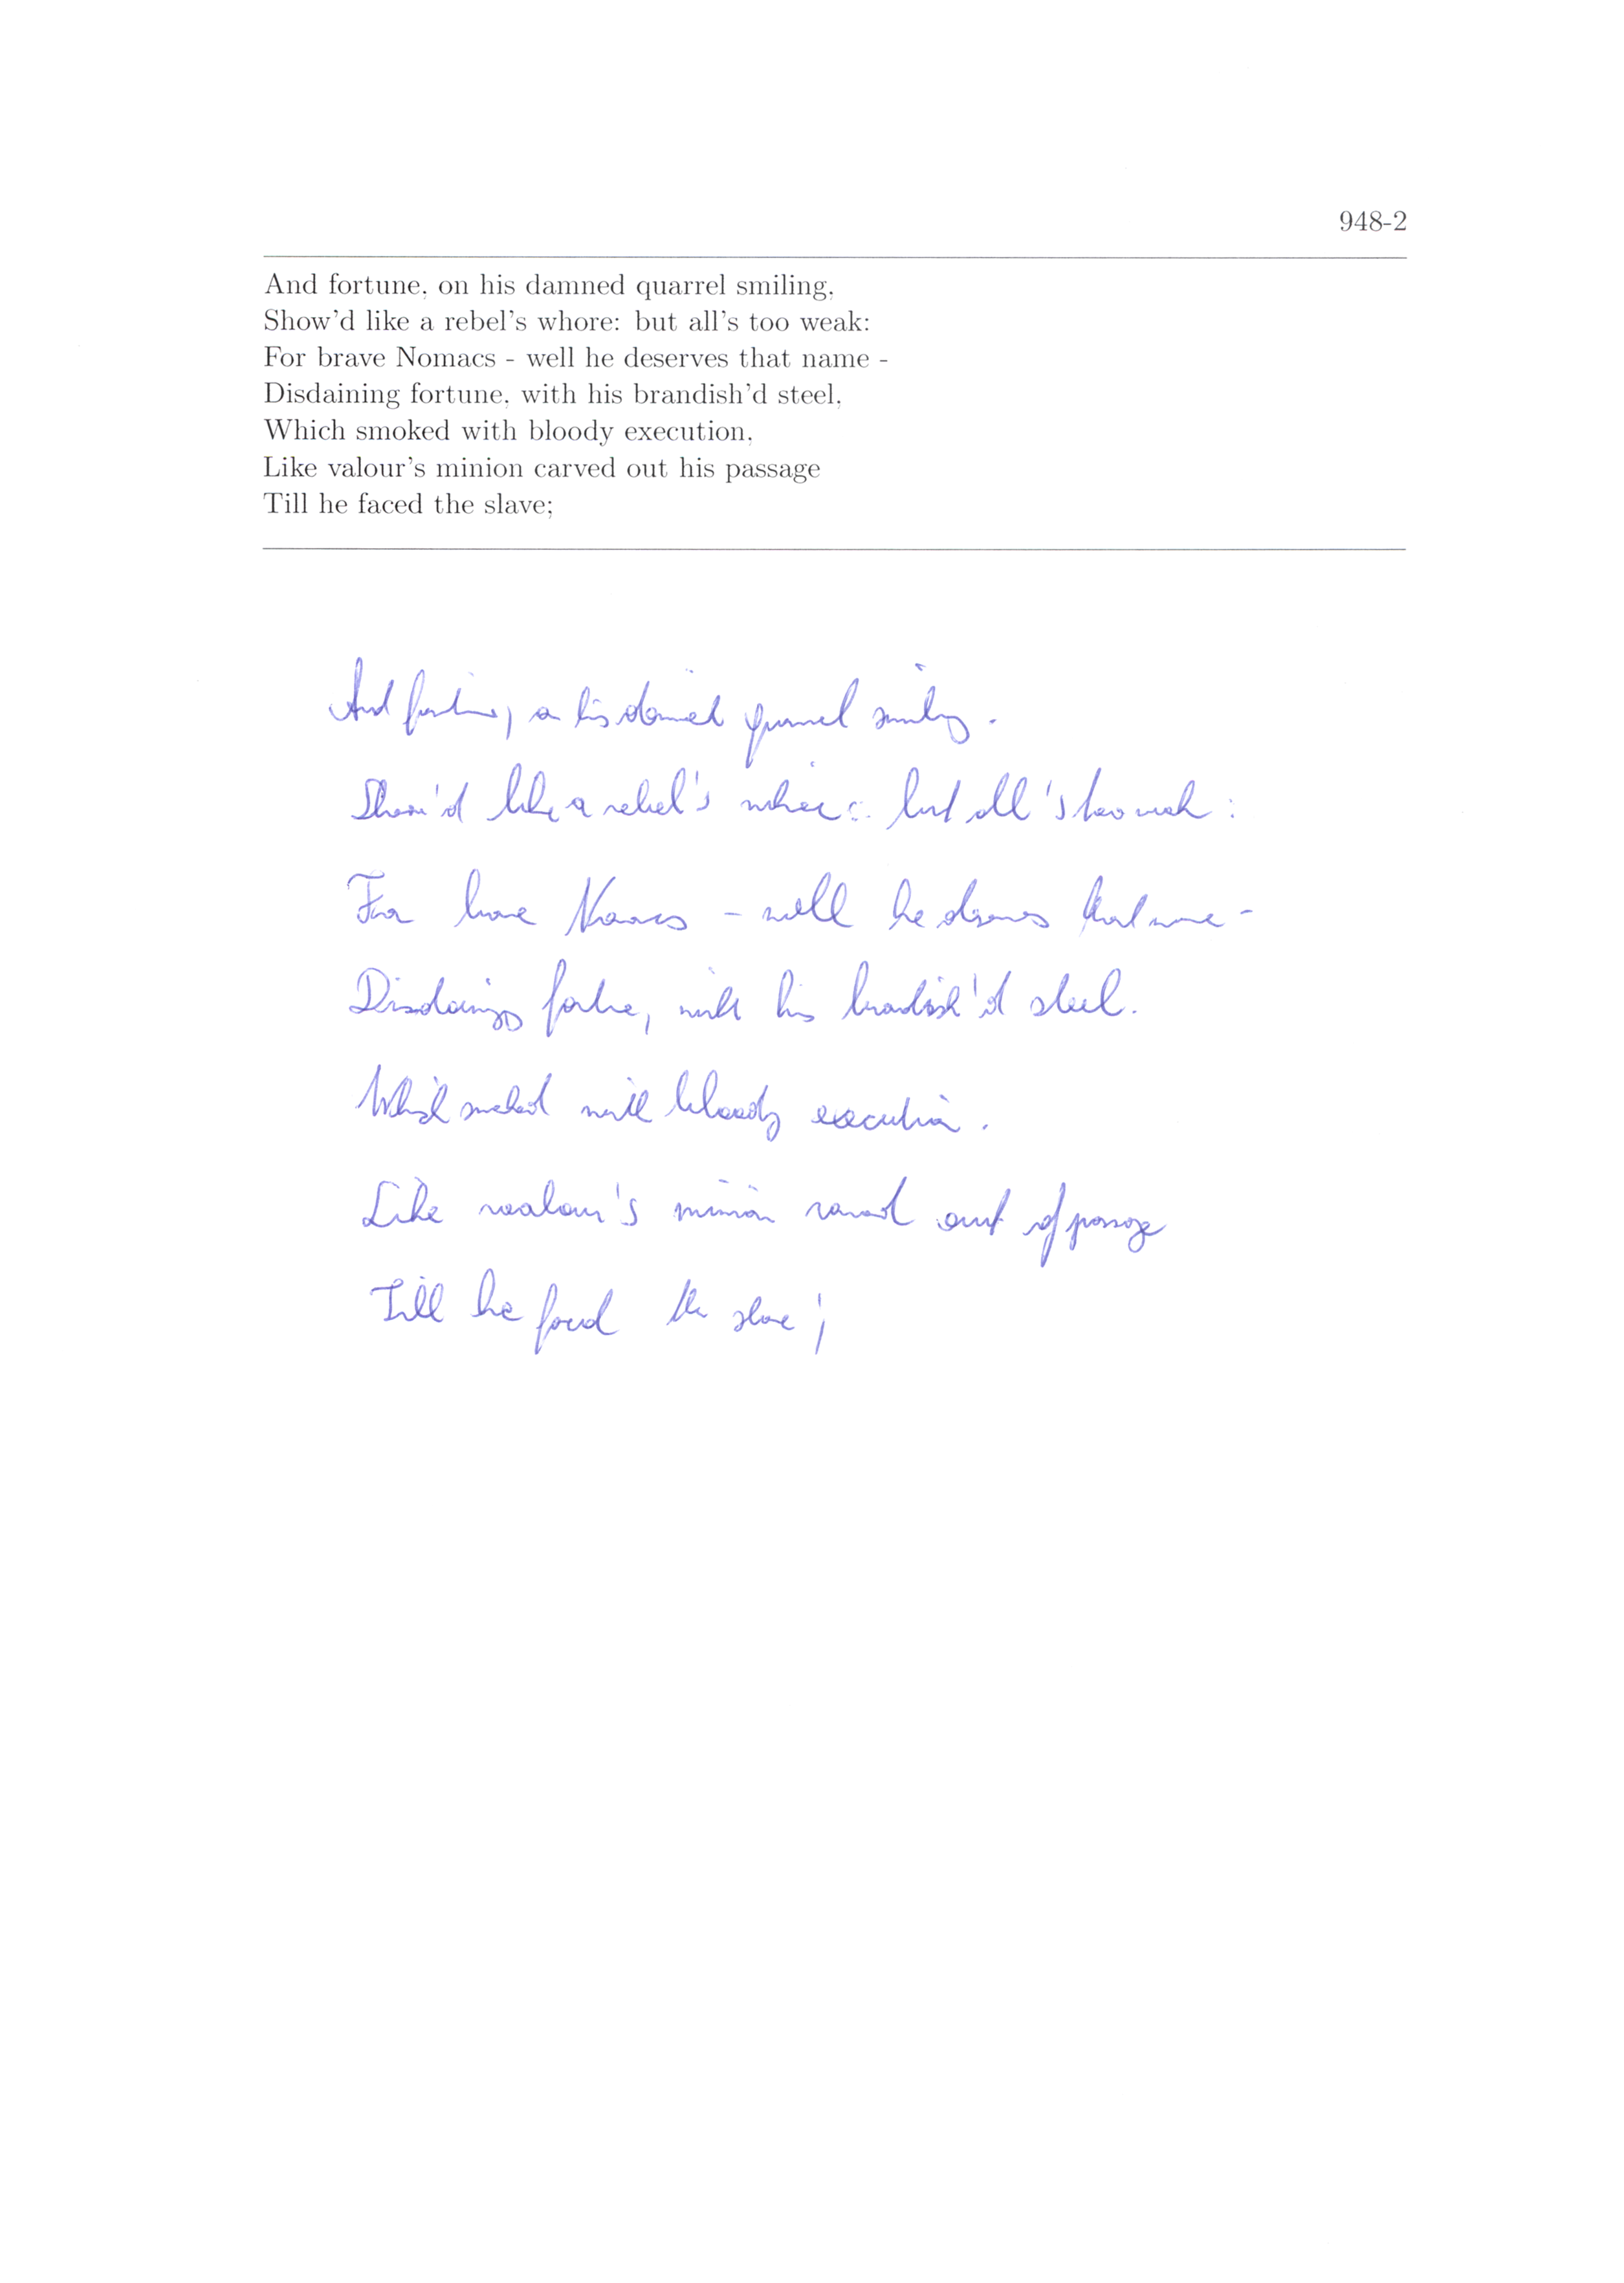 948-2
And fortune, on his damned quarrel smiling,
Show'd like a rebel's whore: but all's too weak:
For brave Nomacs - well he deserves that name -
Disdaining fortune, with his brandish'd steel,
Which smoked with bloody execution,
Like valour's minion carved out his passage
Till he faced the slave;
And fortune, on his damned quarrel smiling.
Show'd like a rebel's whore: but all's too weak:
For brave Nomacs - well he deserves that name -
Disdaining fortune, with his brandish'd steel.
Which smoked with bloody execution.
Like valour's minion carved out of passage
Till he faced the slave;